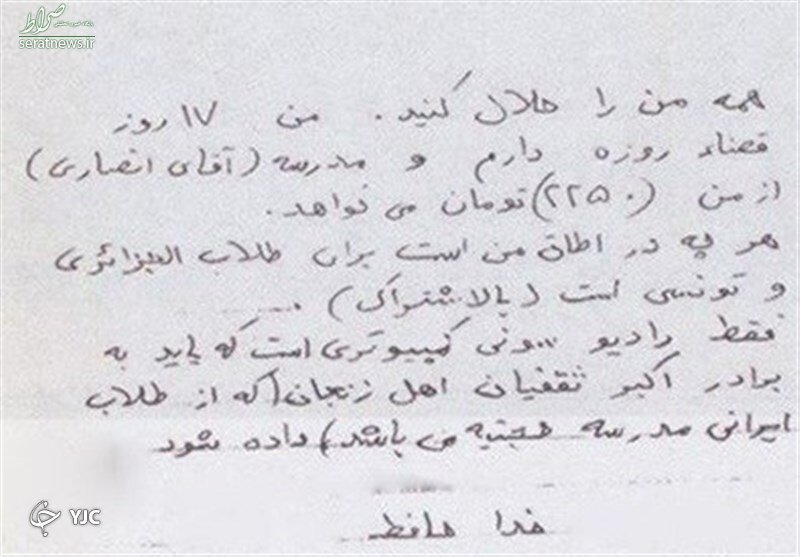 صراط
پایگاه خبری تحلیلی
seratnews.ir
همه من را حلال کنید. من ۱۷ روز
قضاء روزه دارم و مدرسه (آقای انصاری)
از من (۲۲۵۰) تومان می خواهد.
هر چه در اطاق من است برای طلاب الجزائری
و تونسی است (بالاشتراک).
فقط رادیو سونی کمپیوتری است که باید به
برادر اکبر ثقفیان اهل زنجان (که از طلاب
ایرانی مدرسه حجتیه می باشد) داده شود
خدا حافظ
YJC